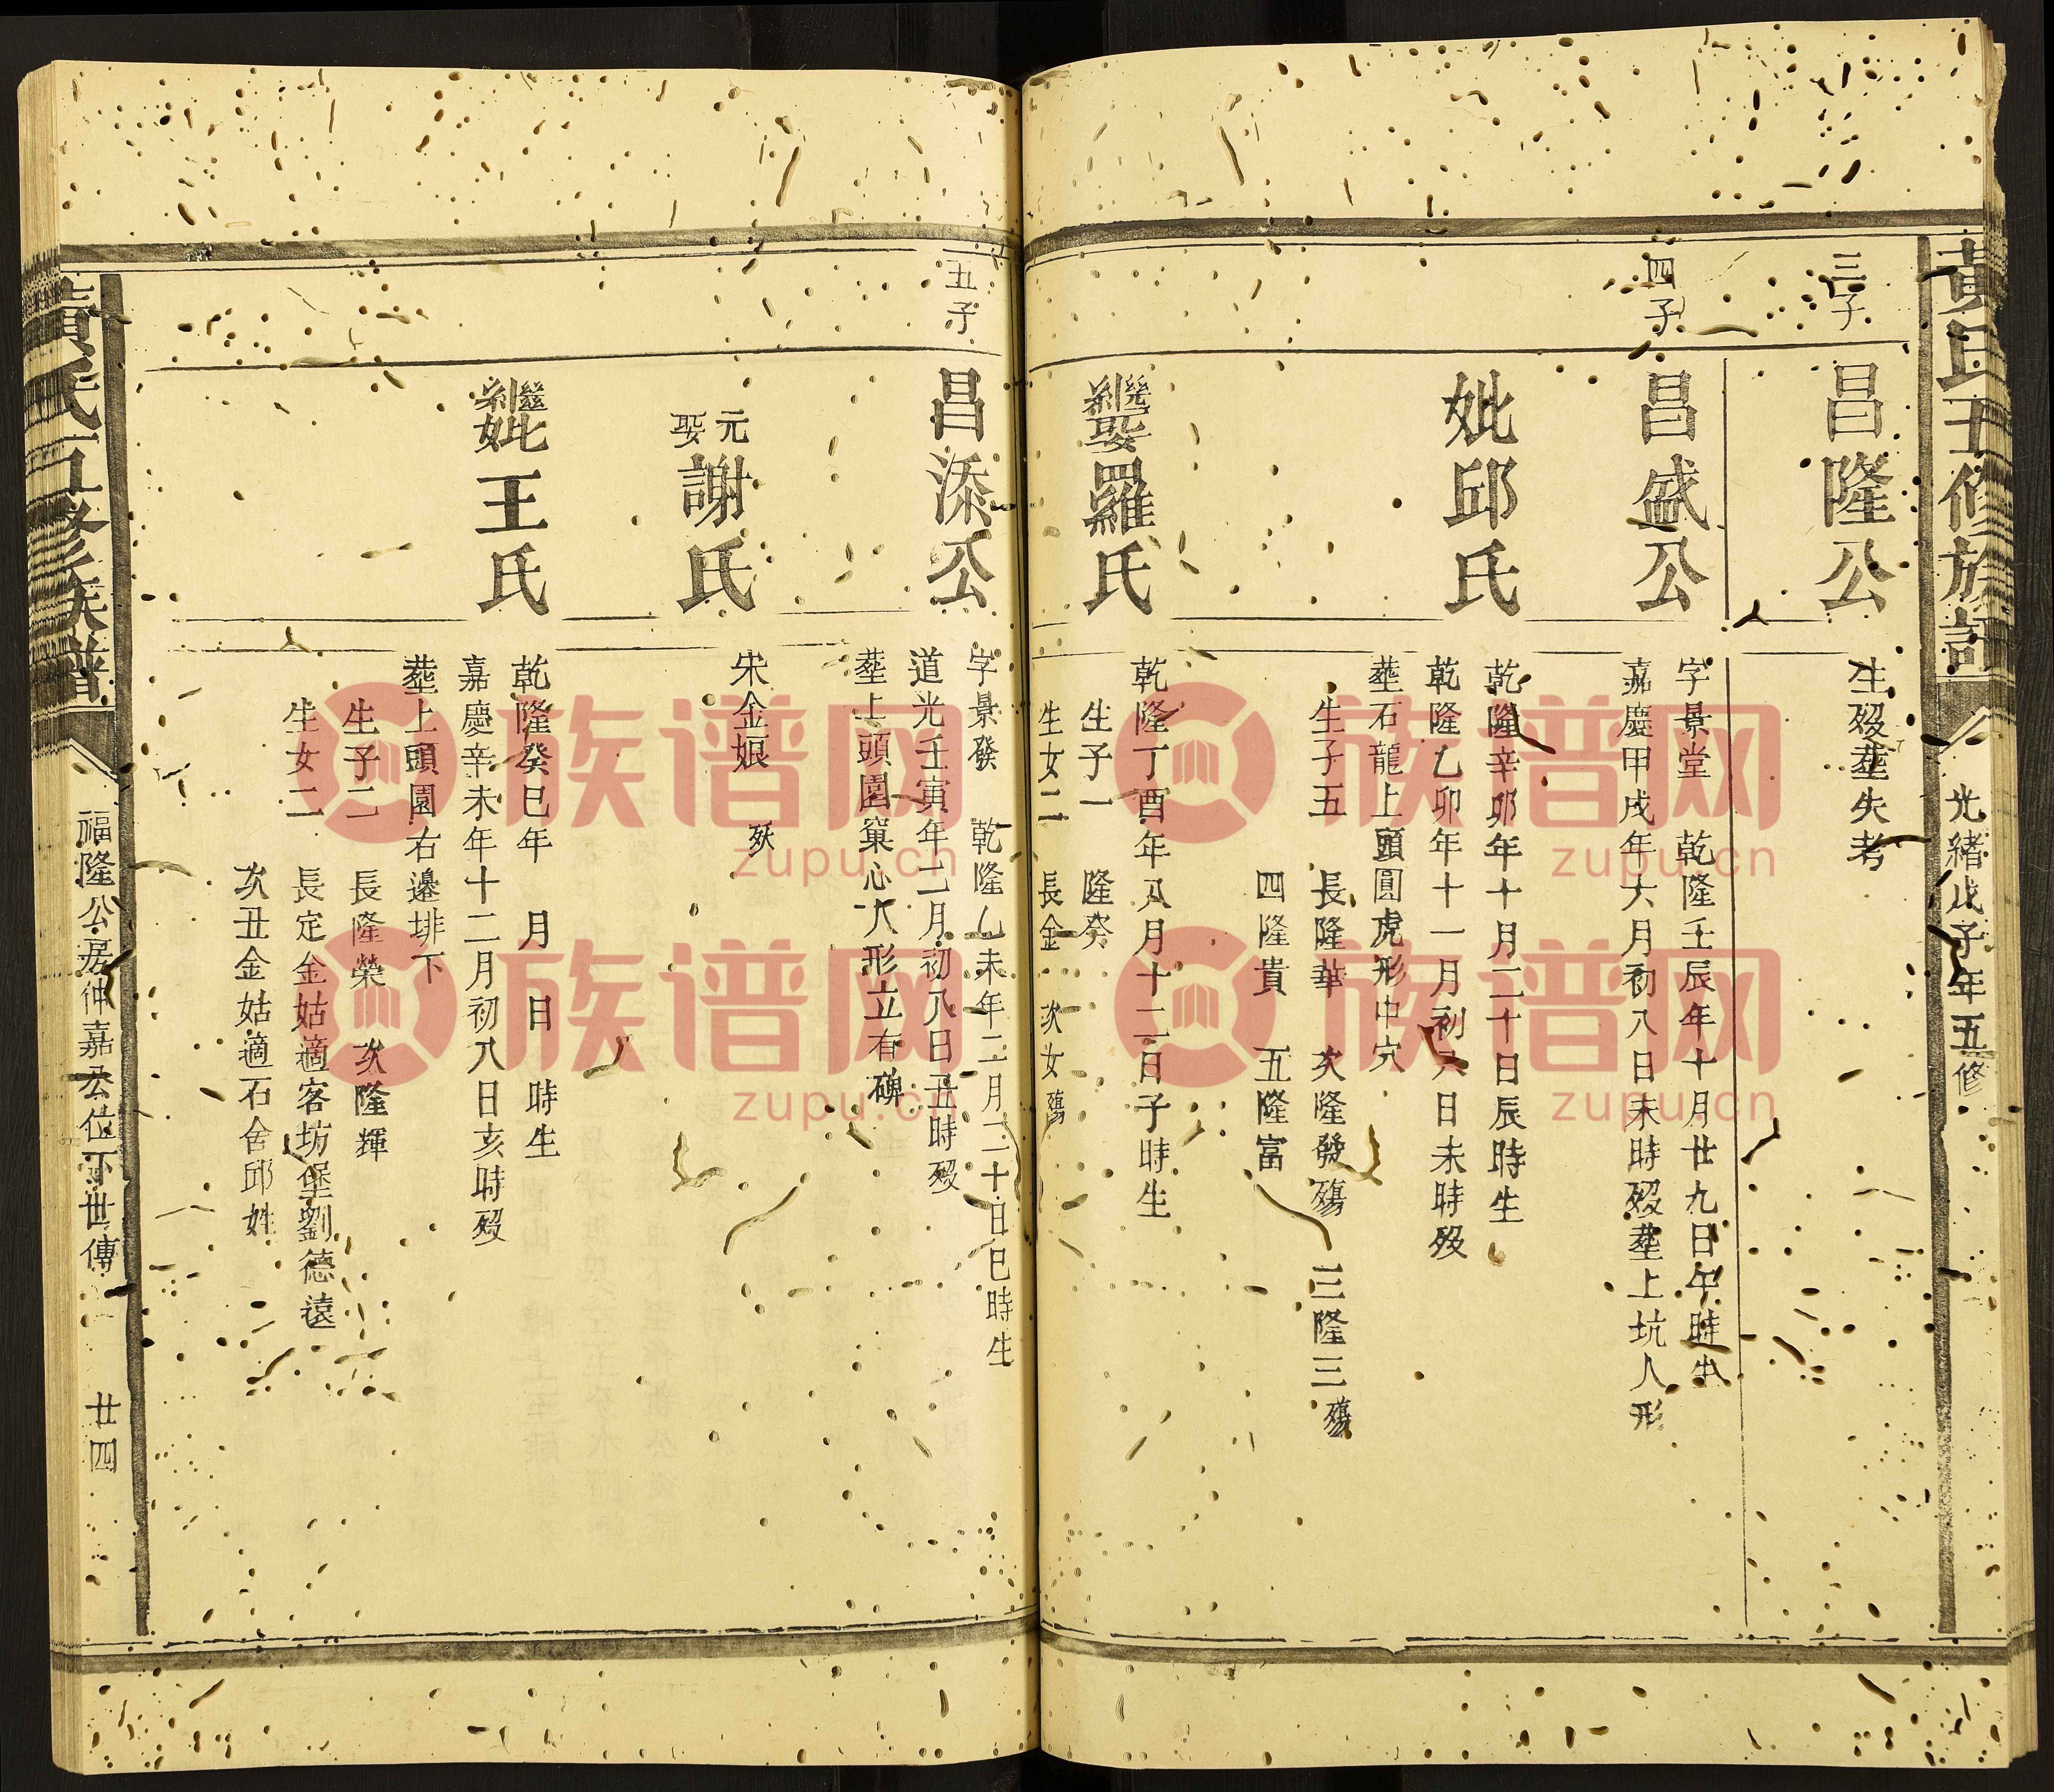 黃氏五修族譜
光緒戊子年五修
三子
昌隆公
生歿塟失考
四子
昌盛公
字景堂 乾隆壬辰年十月廿九日午時生
嘉慶甲戌年六月初八日未時歿塟上坑人形
妣邱氏
乾隆辛卯年十月二十日辰時生
乾隆乙卯年十一月初六日未時歿
塟石龍上頭圓虎形中穴
生子五 長隆華 次隆發殤 三隆三殤
四隆貴 五隆富
繼娶羅氏
乾隆丁酉年八月十二日子時生
生子一 隆癸
生女二 長金 次女殤
五子
昌添公
字景發 乾隆乙未年二月二十日巳時生
道光壬寅年二月初八日丑時歿
塟上頭園窠心人形立有碑
元娶謝氏
宋金娘 歿
繼妣王氏
乾隆癸巳年 月 日 時生
嘉慶辛未年十二月初八日亥時歿
塟上頭園右邊排下
生子二 長隆榮 次隆輝
生女二 長定金姑適客坊堡劉德遠
次丑金姑適石舍邱姓
黃氏五修族譜
福隆公房仲嘉公位下世傳
廿四
族谱网
zupu.cn
族谱网
zupu.cn
族谱网
zupu.cn
族谱网
zupu.cn